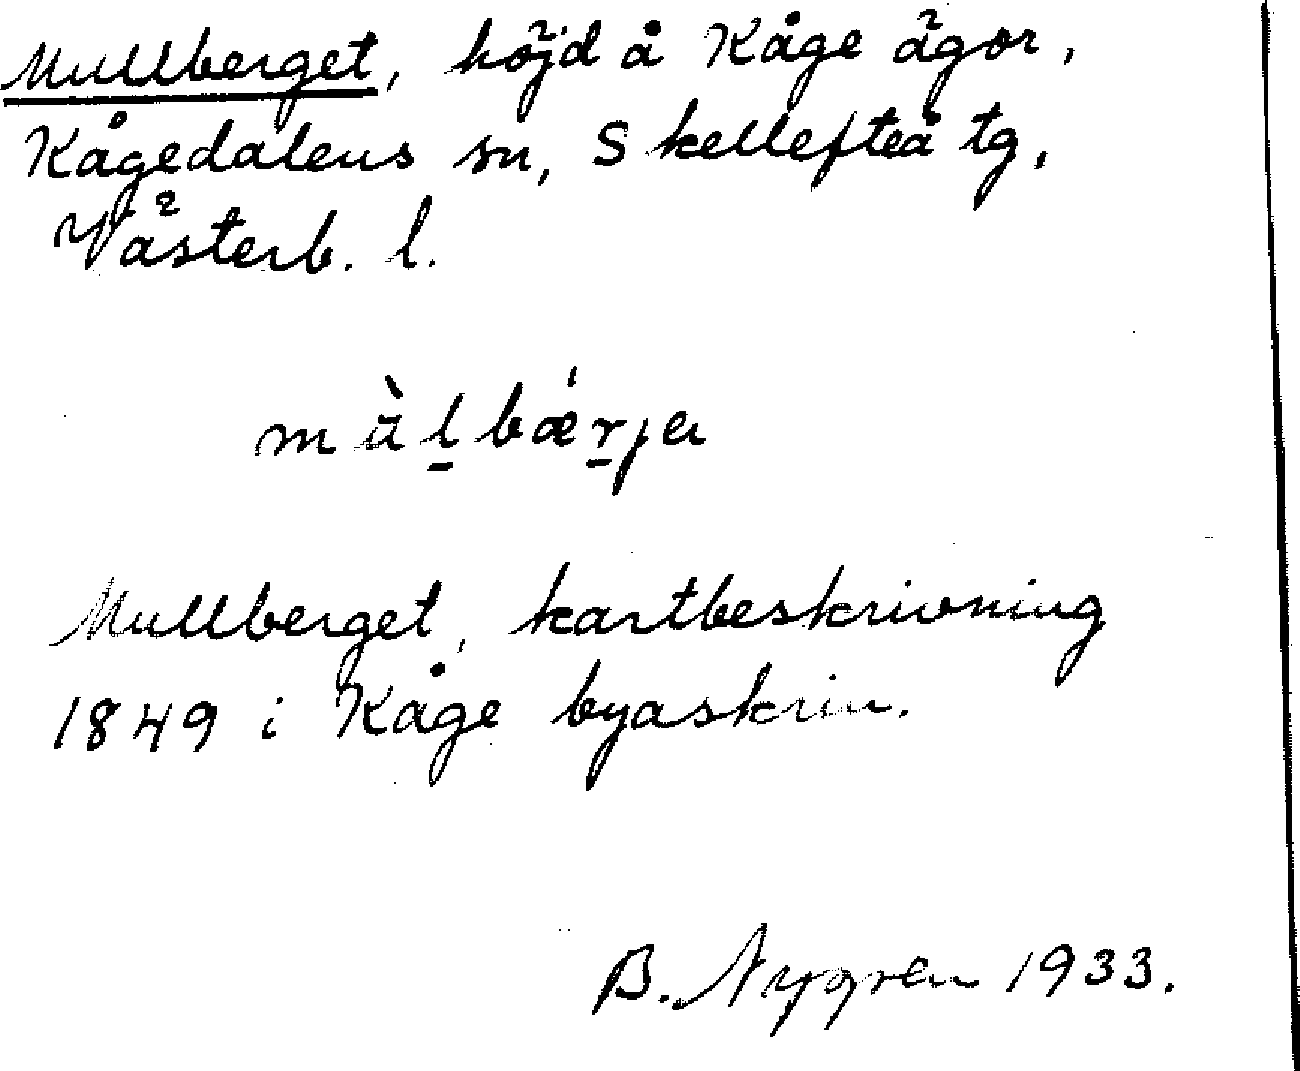 Mullberget, höjd å Kåge ägor,
Kågedalens sn, Skellefteå tg,
Västerb. l.
mùḻbǽṟja
Mullberget, kartbeskrivning
1849 i Kåge byaskrin.
B. Nygren 1933.